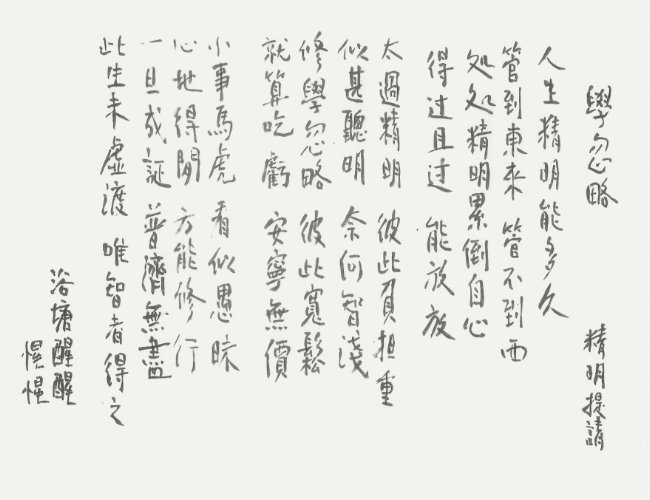 學忽略
精明提請
人生精明能多久
管到東來 管不到西
处处精明累倒自心
得过且过 能放放
太過精明 彼此負担重
似甚聽明 奈何智淺
修學忽略 彼此寬鬆
就算吃虧 安寧無價
小事馬虎 看似愚昧
心地得閒 方能修行
一旦成証 普濟無盡
此生未虛渡 唯智者得之
浴塘醒醒
惺惺